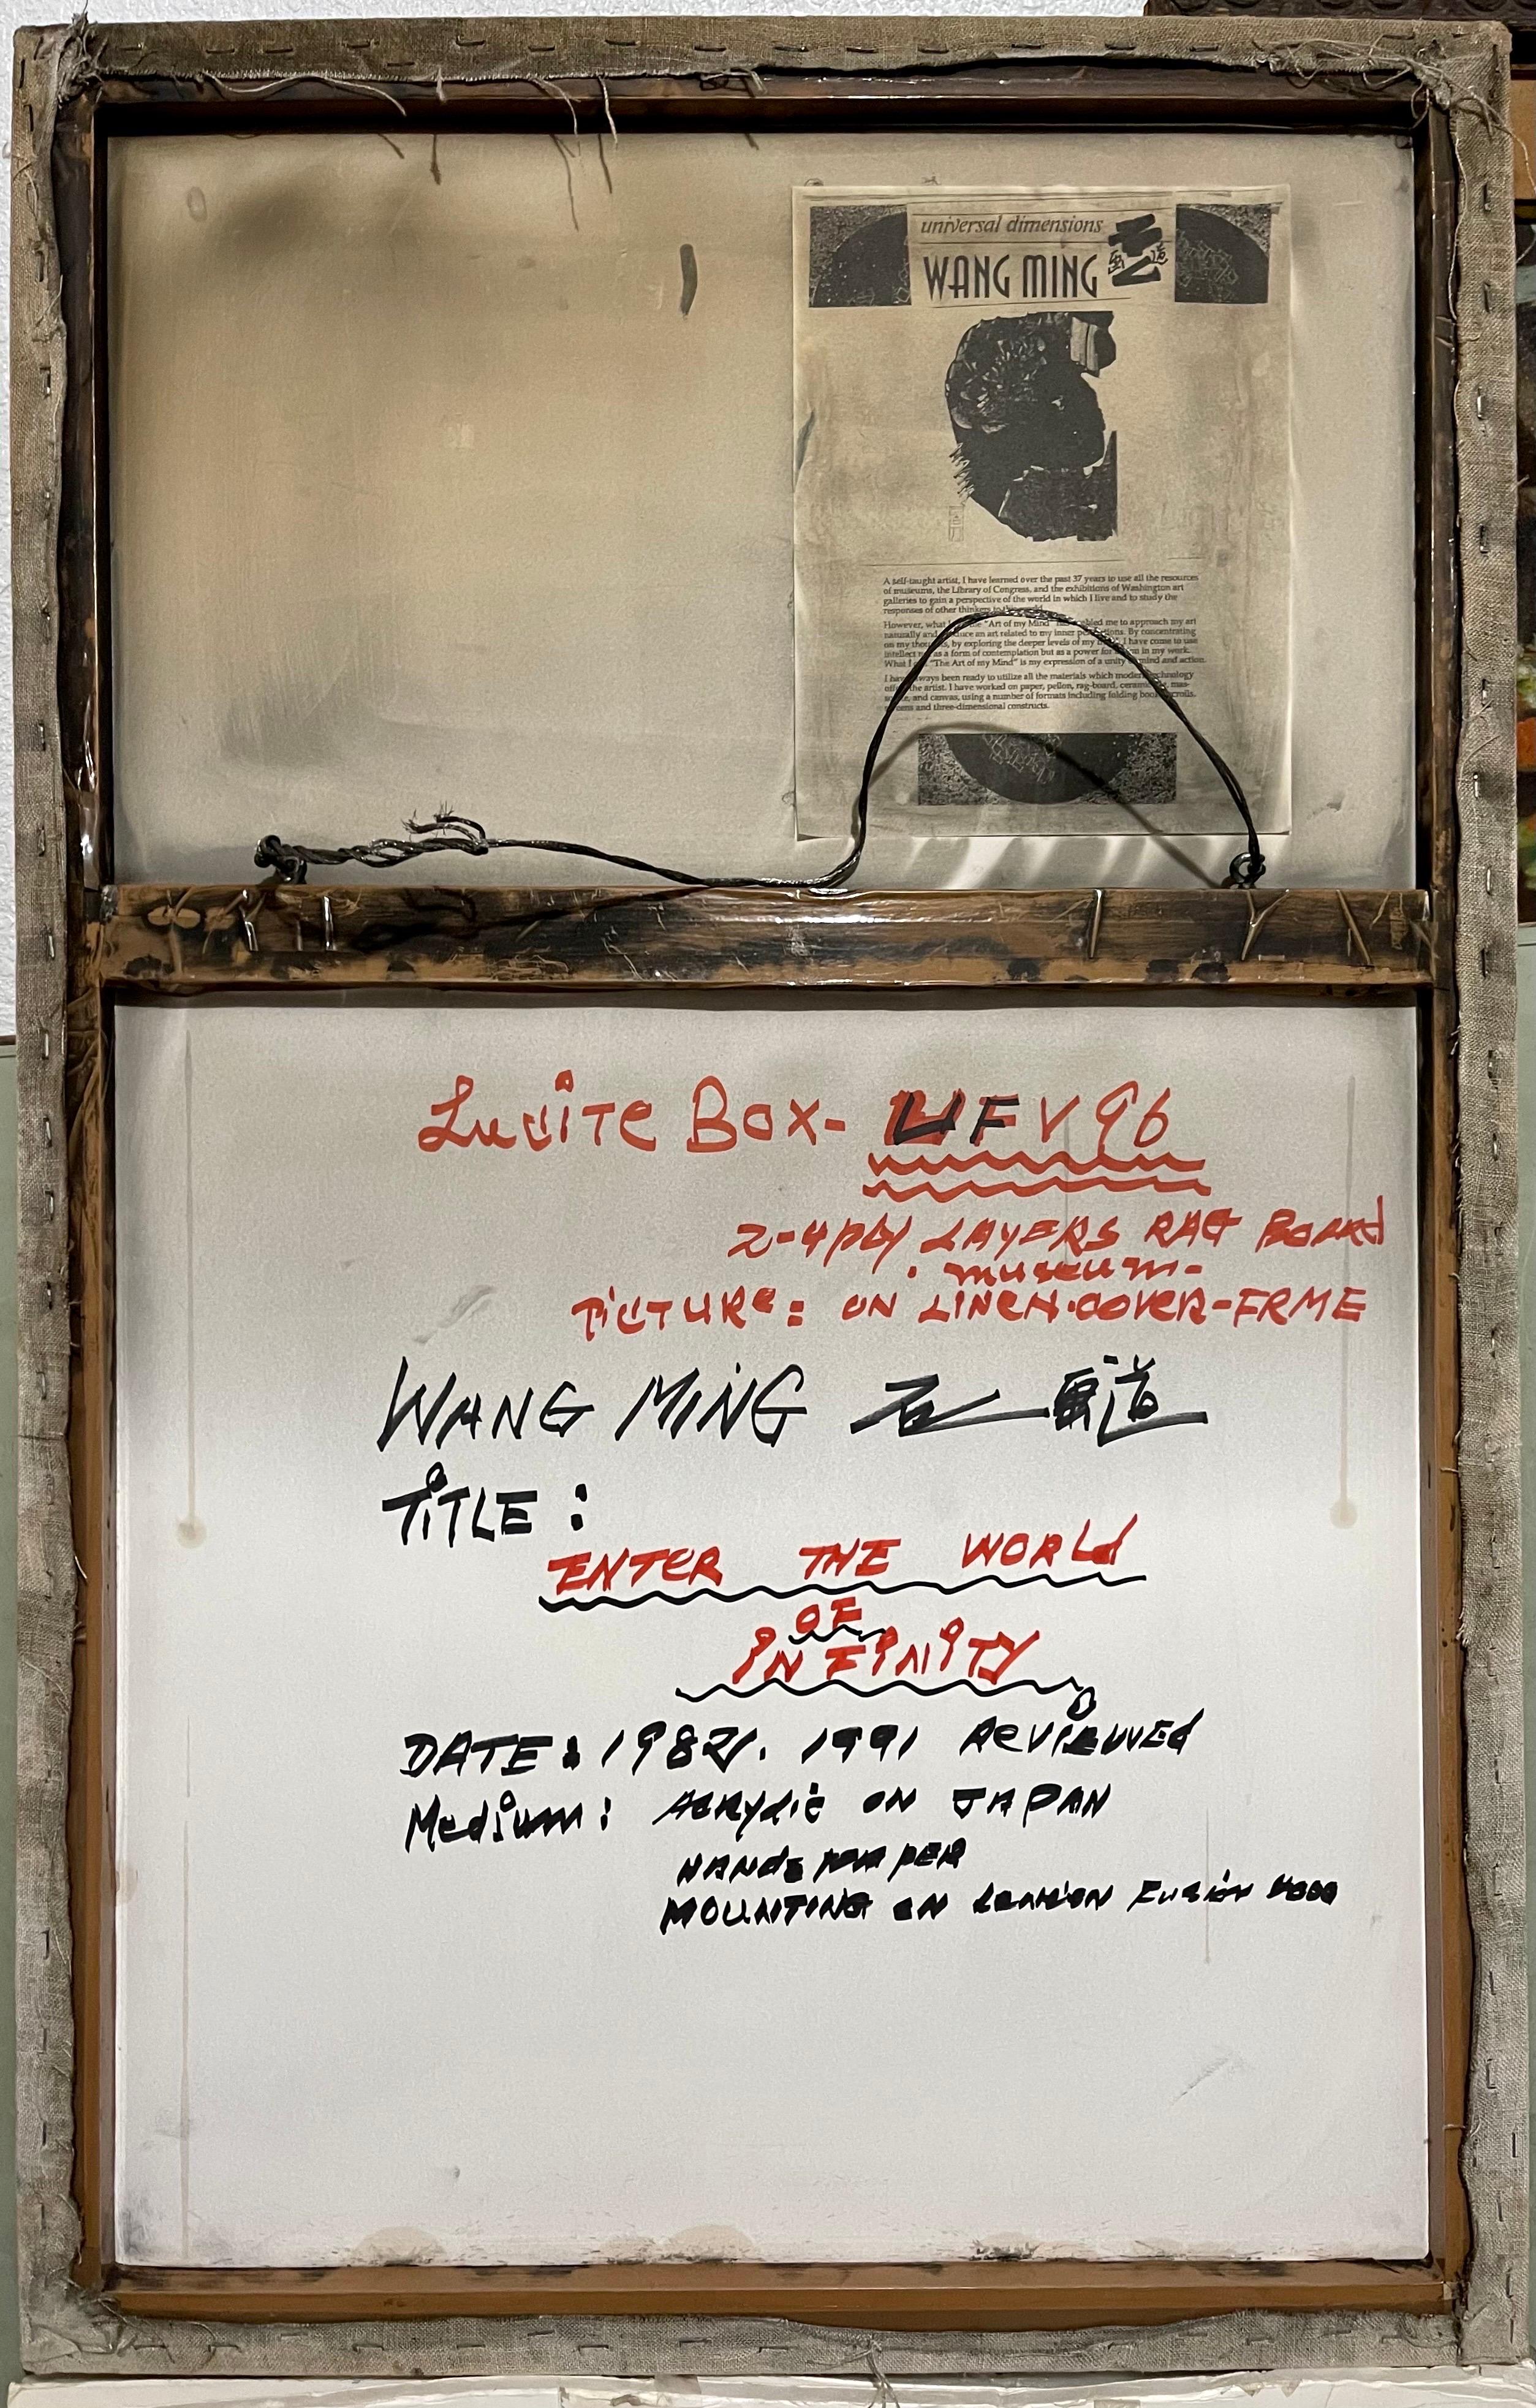 universal dimensions
WANG MING
画道
A self-taught artist, I have learned over the past 37 years to use all the resources
of museums, the Library of Congress, and the exhibitions of Washington art
galleries to gain a perspective of the world in which I live and to study the
responses of other thinkers to this world.
However, what I "Art of my Mind" has enabled me to approach my art
naturally and produce an art related to my inner perceptions. By concentrating
on my thoughts, by exploring the deeper levels of my I have come to use
intellect not as a form of contemplation but as a power for action in my work.
What I "The Art of my Mind" is my expression of a unity of mind and action.
I have always been ready to utilize all the materials which modern technology
offers the artist. I have worked on paper, pellon, rag-board, ceramics, mas-
and canvas, using a number of formats including folding books, scrolls,
screens and three-dimensional constructs.
Lucite Box- UFV96
2-4 ply LAYERS RAG BOARD
museum-
PICTURE: ON LINEN-COVER-FRME
WANG MING 画道
TITLE:
ENTER THE WORLD
OF
INFINITY
DATE: 1982. 1991 REVIEWED
Medium: ACRYLIC ON JAPAN
HANDS PAPER
MOUNTING ON FUSION